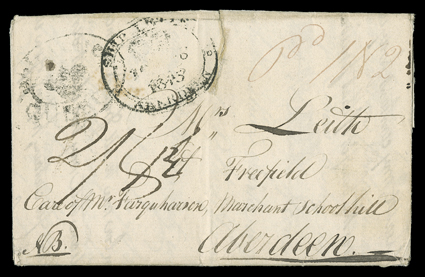 SHIP LETTER
ABERDEEN
Pd 1N2
2/6½
Mrs Leith
Freefield
Care of Mr. Farquharson, Merchant Schoolhill
Aberdeen.
NB.